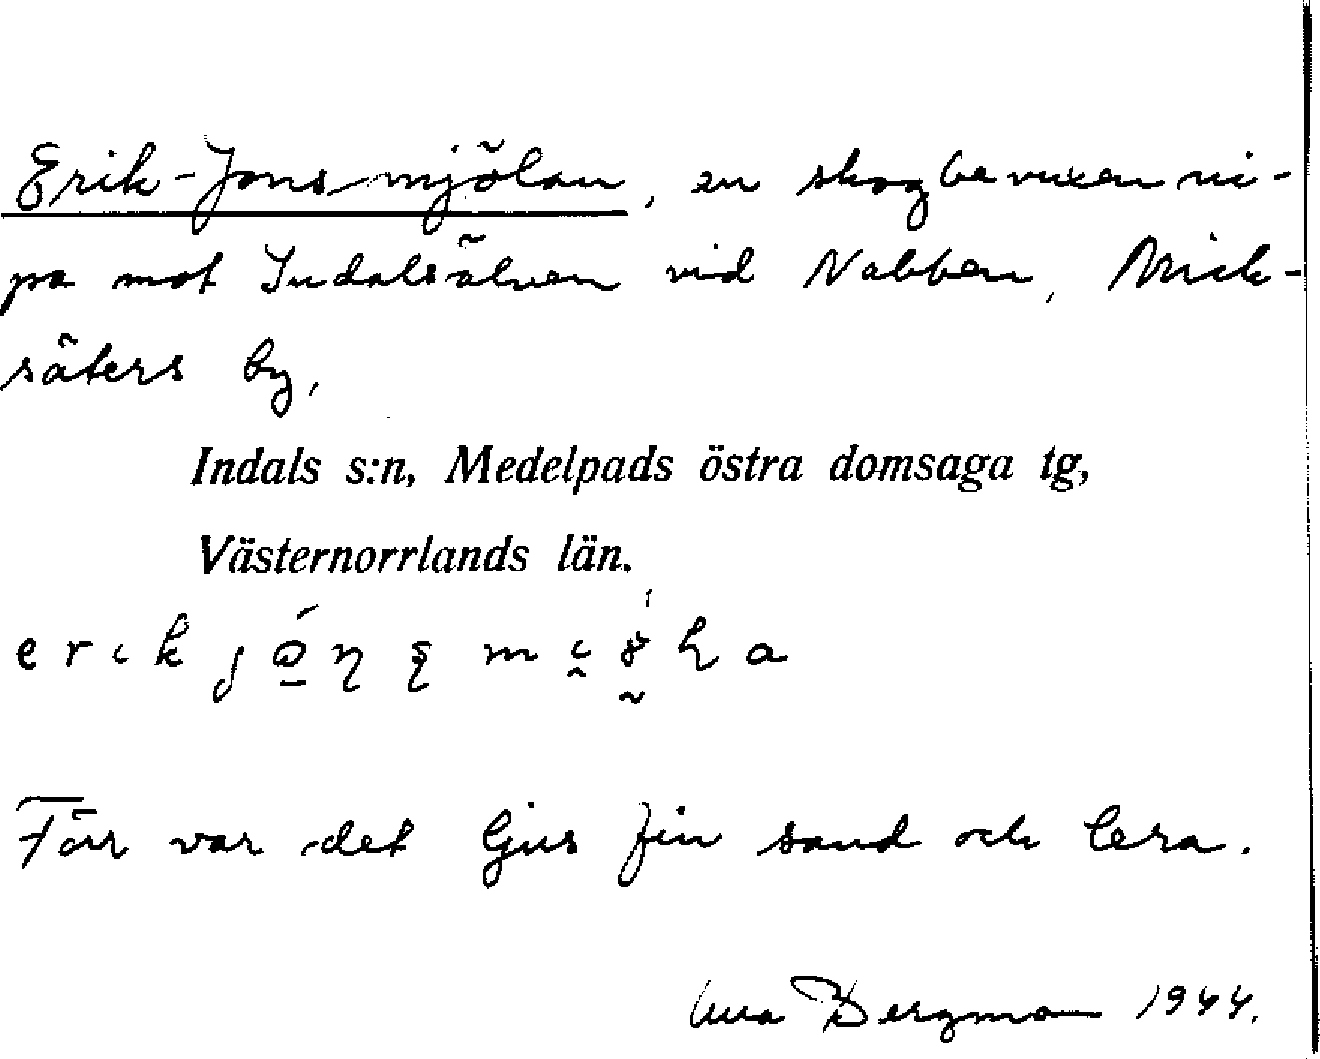 Erik-Jonsmjölan, en skogbevuxen ni-
pa mot Indalsälven vid Nabben,
säters by,
Indals s:n, Medelpads östra domsaga tg,
Västernorrlands län.
Förr var det ljus fin sand och lera.
Bergman 1944.